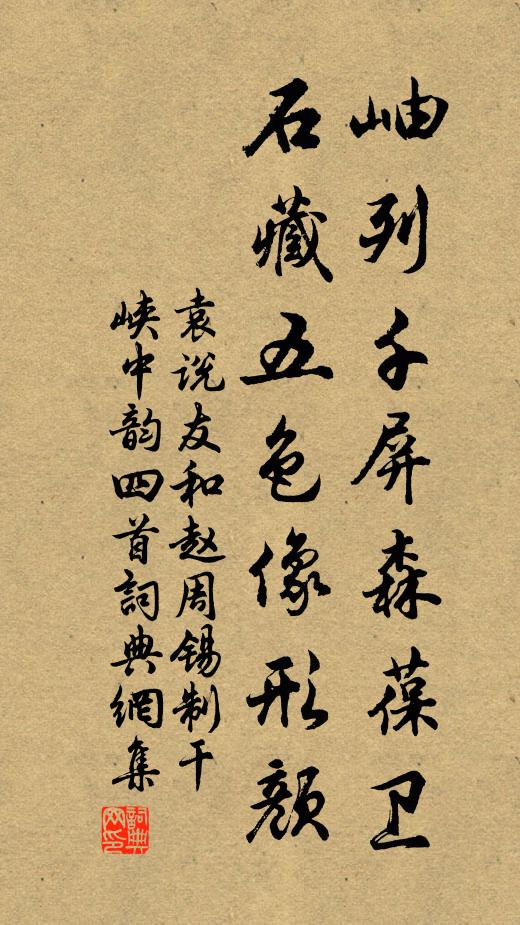 岫列千屏森葆卫
石藏五色像形颜
袁说友和赵周锡制干
峡中韵四首詞典網集
詞典网印